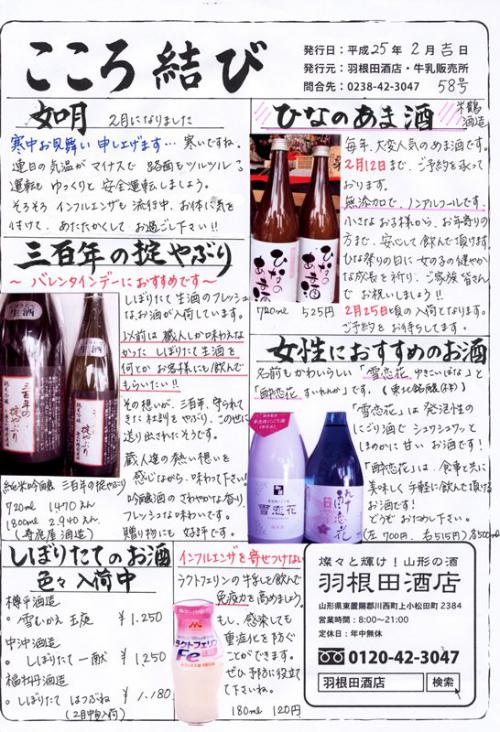 こころ結び
発行日：平成25年2月吉日
発行元：羽根田酒店・牛乳販売所
問合先：0238-42-3047
58号
如月 2月になりました
寒中お見舞い申し上げます… 寒いですね。
連日の気温がマイナスで 路面もツルツル？
運転も ゆっくりと 安全運転しましょう。
そろそろ インフルエンザも 流行中、お体に気を
付けて、あたたかくして お過ごし下さい!!
三百年の掟やぶり
～ バレンタインデーにおすすめです～
しぼりたて生酒のフレッシュ
なお酒が入荷しています。
以前は 蔵人しか味わえな
かった しぼりたて生酒を
何とか お客様にも飲んで
もらいたい!!
その想いが、三百年、守られて
きた 社訓を やぶり、この世に
送り出されたそうです。
蔵人達の熱い想いを
感じながら、味わって下さい!!
吟醸酒の さわやかな香り
フレッシュな味わいです。
贈り物にも 好評です。
生酒
三百年の掟やぶり
純米吟醸 三百年の掟やぶり
720ml 1470えん
1800ml 2.940えん
(寿虎屋酒造)
しぼりたてのお酒
色々入荷中
樽平酒造
。雪むかえ
¥1.250
中沖酒造
。しぼりたて一献 ¥1250
。しぼりたて はつね ¥1.180
(2月中旬入荷)
ひなのあま酒
米鶴
酒造
毎年、大変人気のあま酒です。
2月12日まで、ご予約を承って
おります。
無添加で、ノンアルコールです。
小さなお子様から、お年寄りの
方まで、安心して飲んで頂けます。
ひな祭りの日に 女の子の健やか
な成長を祈り、ご家族皆さん
で お祝いしましょう!!
2月25日頃の入荷となります。
ご予約を お待ちしてます。
ひなのあま酒
720ml 525円
女性におすすめのお酒
名前もかわいらしい「雪恋花 ゆきこいばな」と
「酔恋花 すいれんか」です。(東北銘醸(株))
「雪恋花」は 発泡性の
にごり酒で シュワシュワッと
ほのかに甘い お酒です！
「酔恋花」は、食事と共に
美味しく 手軽に飲んで頂ける
お酒です！
どうぞ お ためし 下さい。
(左 700円、右515円)
雪恋花
インフルエンザを寄せつけない
ラクトフェリンの牛乳を飲んで
免疫力を高めましょう。
もし、感染しても
重症化を防ぐ
ことができます。
ぜひ 予防に役立て
て下さいね。
180ml 120円
ラクトフェリン
Fe
燦々と輝け！山形の酒
羽根田酒店
山形県東置賜郡川西町上小松田町 2384
営業時間：8:00～21:00
定休日：年中無休
0120-42-3047
羽根田酒店 検索